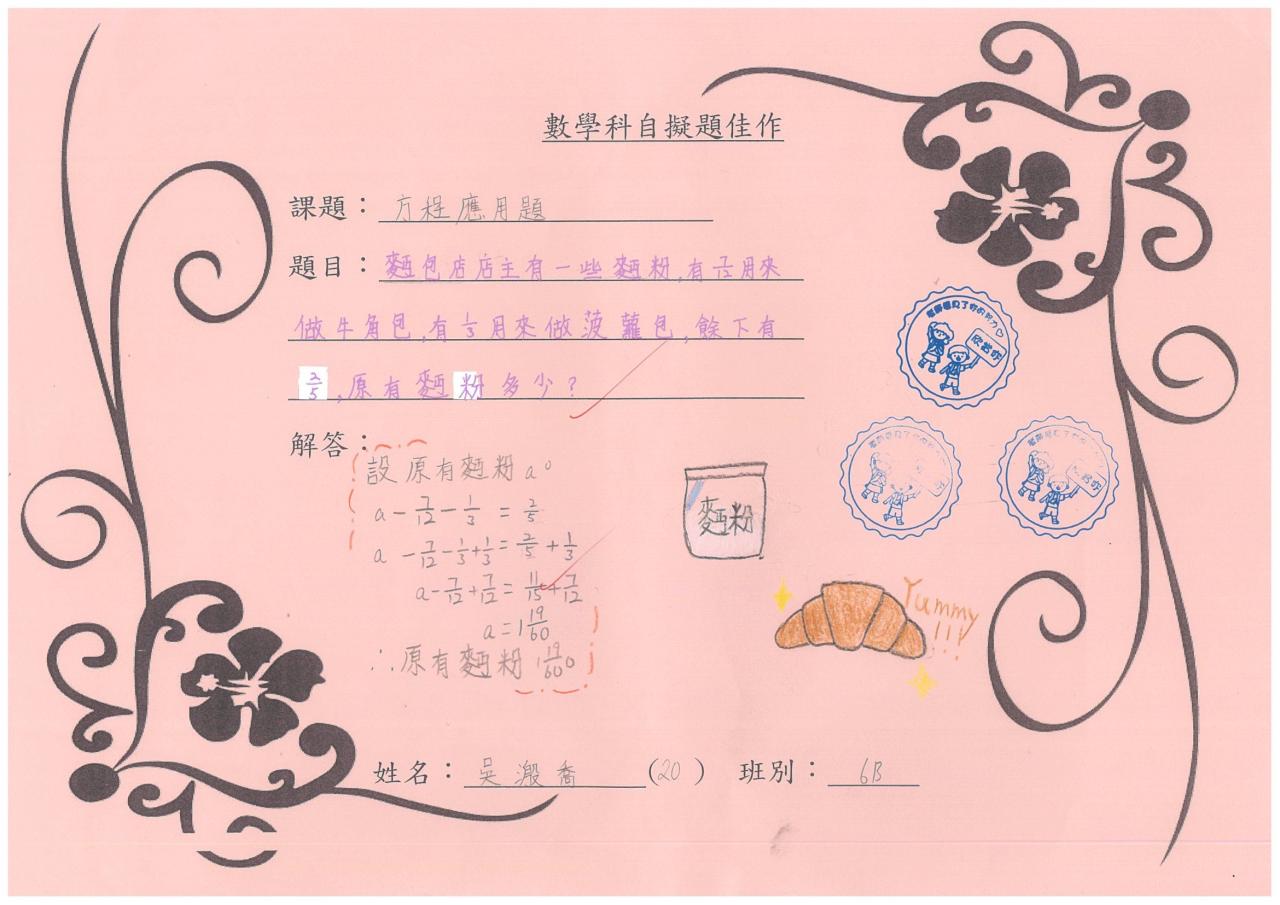 數學科自擬題佳作
課題：方程應用題
題目：麵包店店主有一些麵粉,有7/12用來
做牛角包,有1/3用來做菠蘿包,餘下有
2/5,原有麵粉多少?
解答：
設原有麵粉a。
a - 7/12 - 1/3 = 2/5
a - 7/12 - 1/3 + 1/3 = 2/5 + 1/3
a - 7/12 + 7/12 = 11/15 + 7/12
a = 1 19/60
∴原有麵粉1 19/60。
麵粉
Yummy
!!!
姓名：吳潡喬 (20) 班別：6B